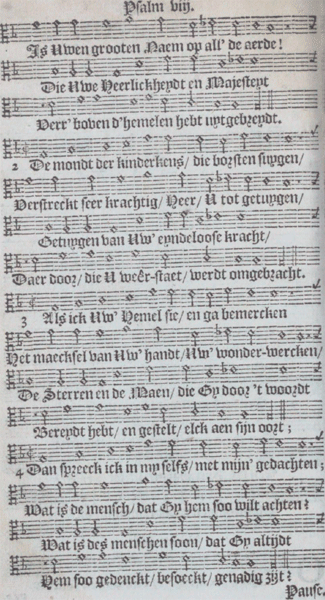 Psalm viij.
Is Uwen grooten Naem op all' de aerde!
Die Uwe Heerlickheydt en Majesteyt
Verr' boven d'hemelen hebt uytgebreydt.
2 De mondt der kinderkens/ die borsten suygen/
Verstreckt seer krachtig/ Heer/ U tot getuygen/
Getuygen van Uw' eyndeloose kracht/
Daer door/ die U weêr-staet/ werdt omgebracht.
3 Als ick Uw' Hemel sie/ en ga bemercken
Het maecksel van Uw' handt/ Uw' wonder-wercken/
De Sterren en de Maen/ die Gy door 't woordt
Bereydt hebt/ en gestelt/ elck aen sijn oort;
4 Dan spreeck ick in my selfs/ met mijn' gedachten;
Wat is de mensch/ dat Gy hem soo wilt achten?
Wat is des menschen soon/ dat Gy altijdt
Hem soo gedenckt/ besoeckt/ genadig zijt?
Pause.